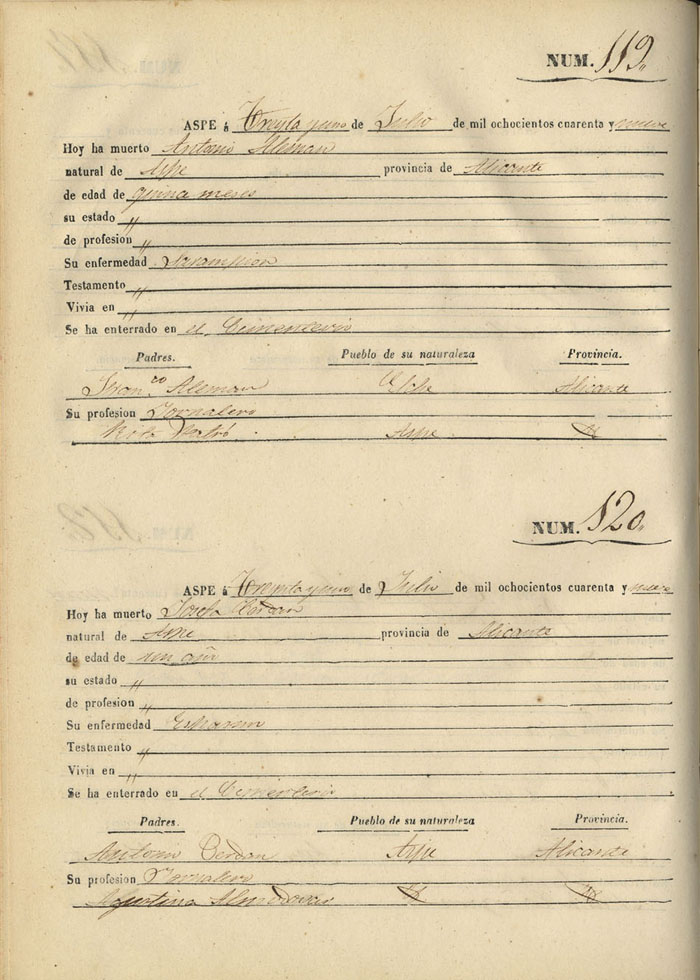 NUM. 119.
ASPE á Treyta y uno de Julio de mil ochocientos cuarenta y nueve
Hoy ha muerto Antonio Aleman
natural de Aspe provincia de Alicante
de edad de quince meses
su estado "
de profesion "
Su enfermedad Sarampion
Testamento "
Vivia en "
Se ha enterrado en el Cimenterio
Padres. Pueblo de su naturaleza Provincia.
Fran.co Aleman Elche Alicante
Su profesion Jornalero
Rita Aspe
NUM. 120.
ASPE á Treynta y uno de Julio de mil ochocientos cuarenta y nueve
Hoy ha muerto Josefa
natural de Aspe provincia de Alicante
de edad de un año
su estado "
de profesion "
Su enfermedad
Testamento "
Vivia en "
Se ha enterrado en el Cimenterio
Padres. Pueblo de su naturaleza Provincia.
Antonio Aspe Alicante
Su profesion Jornalero
Agustina Almodovar